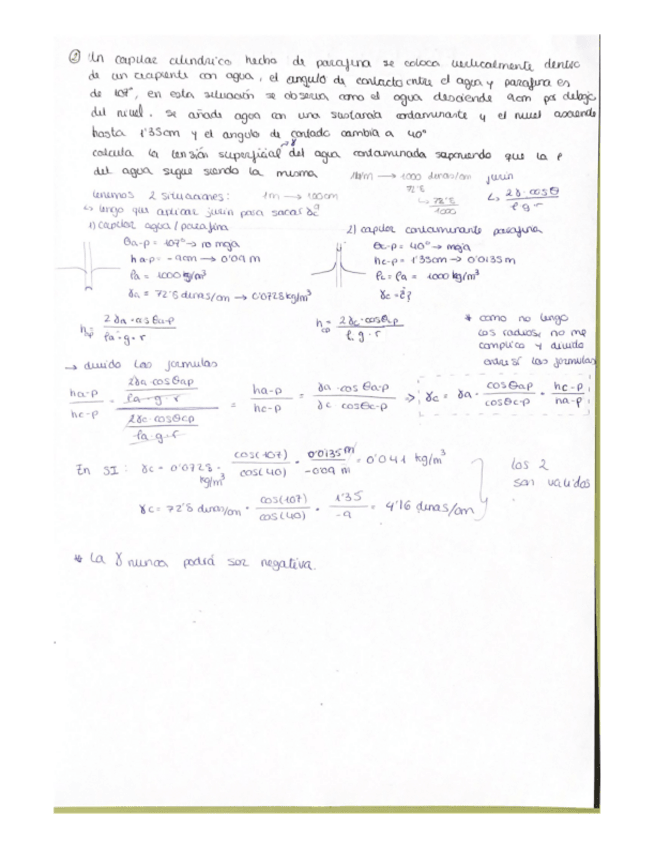 ② Un capilar cilíndrico hecho de parafina se coloca verticalmente dentro
de un recipiente con agua, el angulo de contacto entre el agua y parafina es
de 107°, en esta situación se observa como el agua desciende 9cm por debajo
del nivel. Se añade agua con una sustancia contaminante y el nivel asciende
hasta 1'35cm y el angulo de contacto cambia a 40°
calcula la tensión superficial del agua contaminada suponiendo que la ρ
del agua sigue siendo la misma
1N/m → 1000 dinas/cm
72'8
↳ 72'8/1000
jurin
↳ 2γ·cosθ / ρ·g·r
tenemos 2 situaciones: 1m → 100cm
↳ tengo que aplicar jurin para sacar γc
1) capilar agua / parafina
θa-p = 107° → no moja
ha-p = -9cm → 0'09 m
ρa = 1000 kg/m³
γa = 72'8 dinas/cm → 0'0728 kg/m³
2) capilar contaminante parafina
θc-p = 40° → moja
hc-p = 1'35cm → 0'0135m
ρc = ρa = 1000 kg/m³
γc = ¿?
h = 2γa·cosθa-p / ρa·g·r
h = 2γc·cosθcp / ρ·g·r
* como no tengo
los radios, no me
complico y divido
entre sí las formulas
→ divido las formulas
ha-p / hc-p = (2γa·cosθap / ρa·g·r) / (2γc·cosθcp / ρa·g·r) = ha-p / hc-p = γa·cosθa-p / γc cosθc-p => γc = γa · cosθap / cosθc-p · hc-p / ha-p
En SI: γc = 0'0728 kg/m³ · cos(107) / cos(40) · 0'0135 m / -0'09 m = 0'041 kg/m³
γc = 72'8 dinas/cm · cos(107) / cos(40) · 1'35 / -9 = 4'16 dinas/cm
los 2
son validos
* La γ nunca podrá ser negativa.